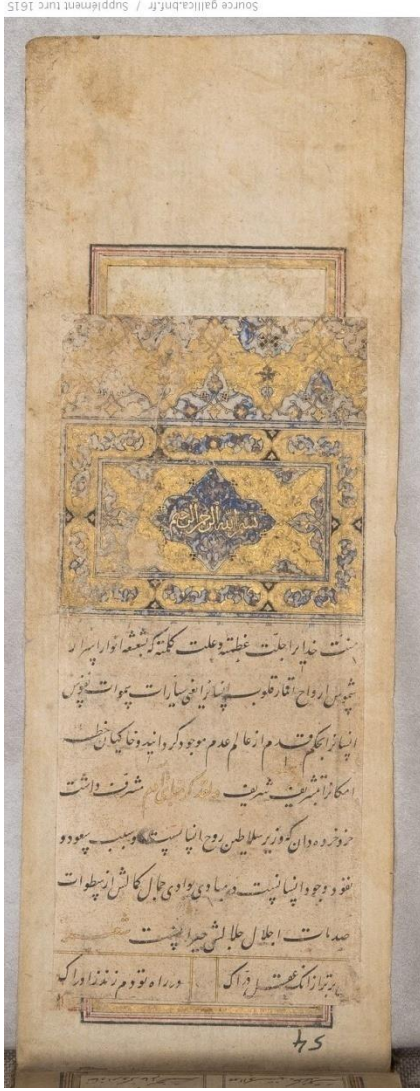 Source gallica.bnf.fr / Supplément turc 1615
بسم الله الرحمن الرحیم
منت خدایرا جلّت عظمته و علت کلمته که شعشعه انوار اسرار
شموس ارواح و اقمار قلوب انسانرا اعنی سیارات سموات نفوس
انسانرا بحکم قدم از عالم عدم موجود کردانید و خاکیان خطه
امکانرا بتشریف شریف مشرف داشت
خرده دان که وزیر سلاطین روح انسانیست و سبب سعود و
نفوذ وجود انسانیست در مبادی وادی جمال کمالش از سطوات
صدمات اجلال جلالش حیرانیست شعر
برتر از انک عقل دراک
در راه تو دم زند ز ادراک
54